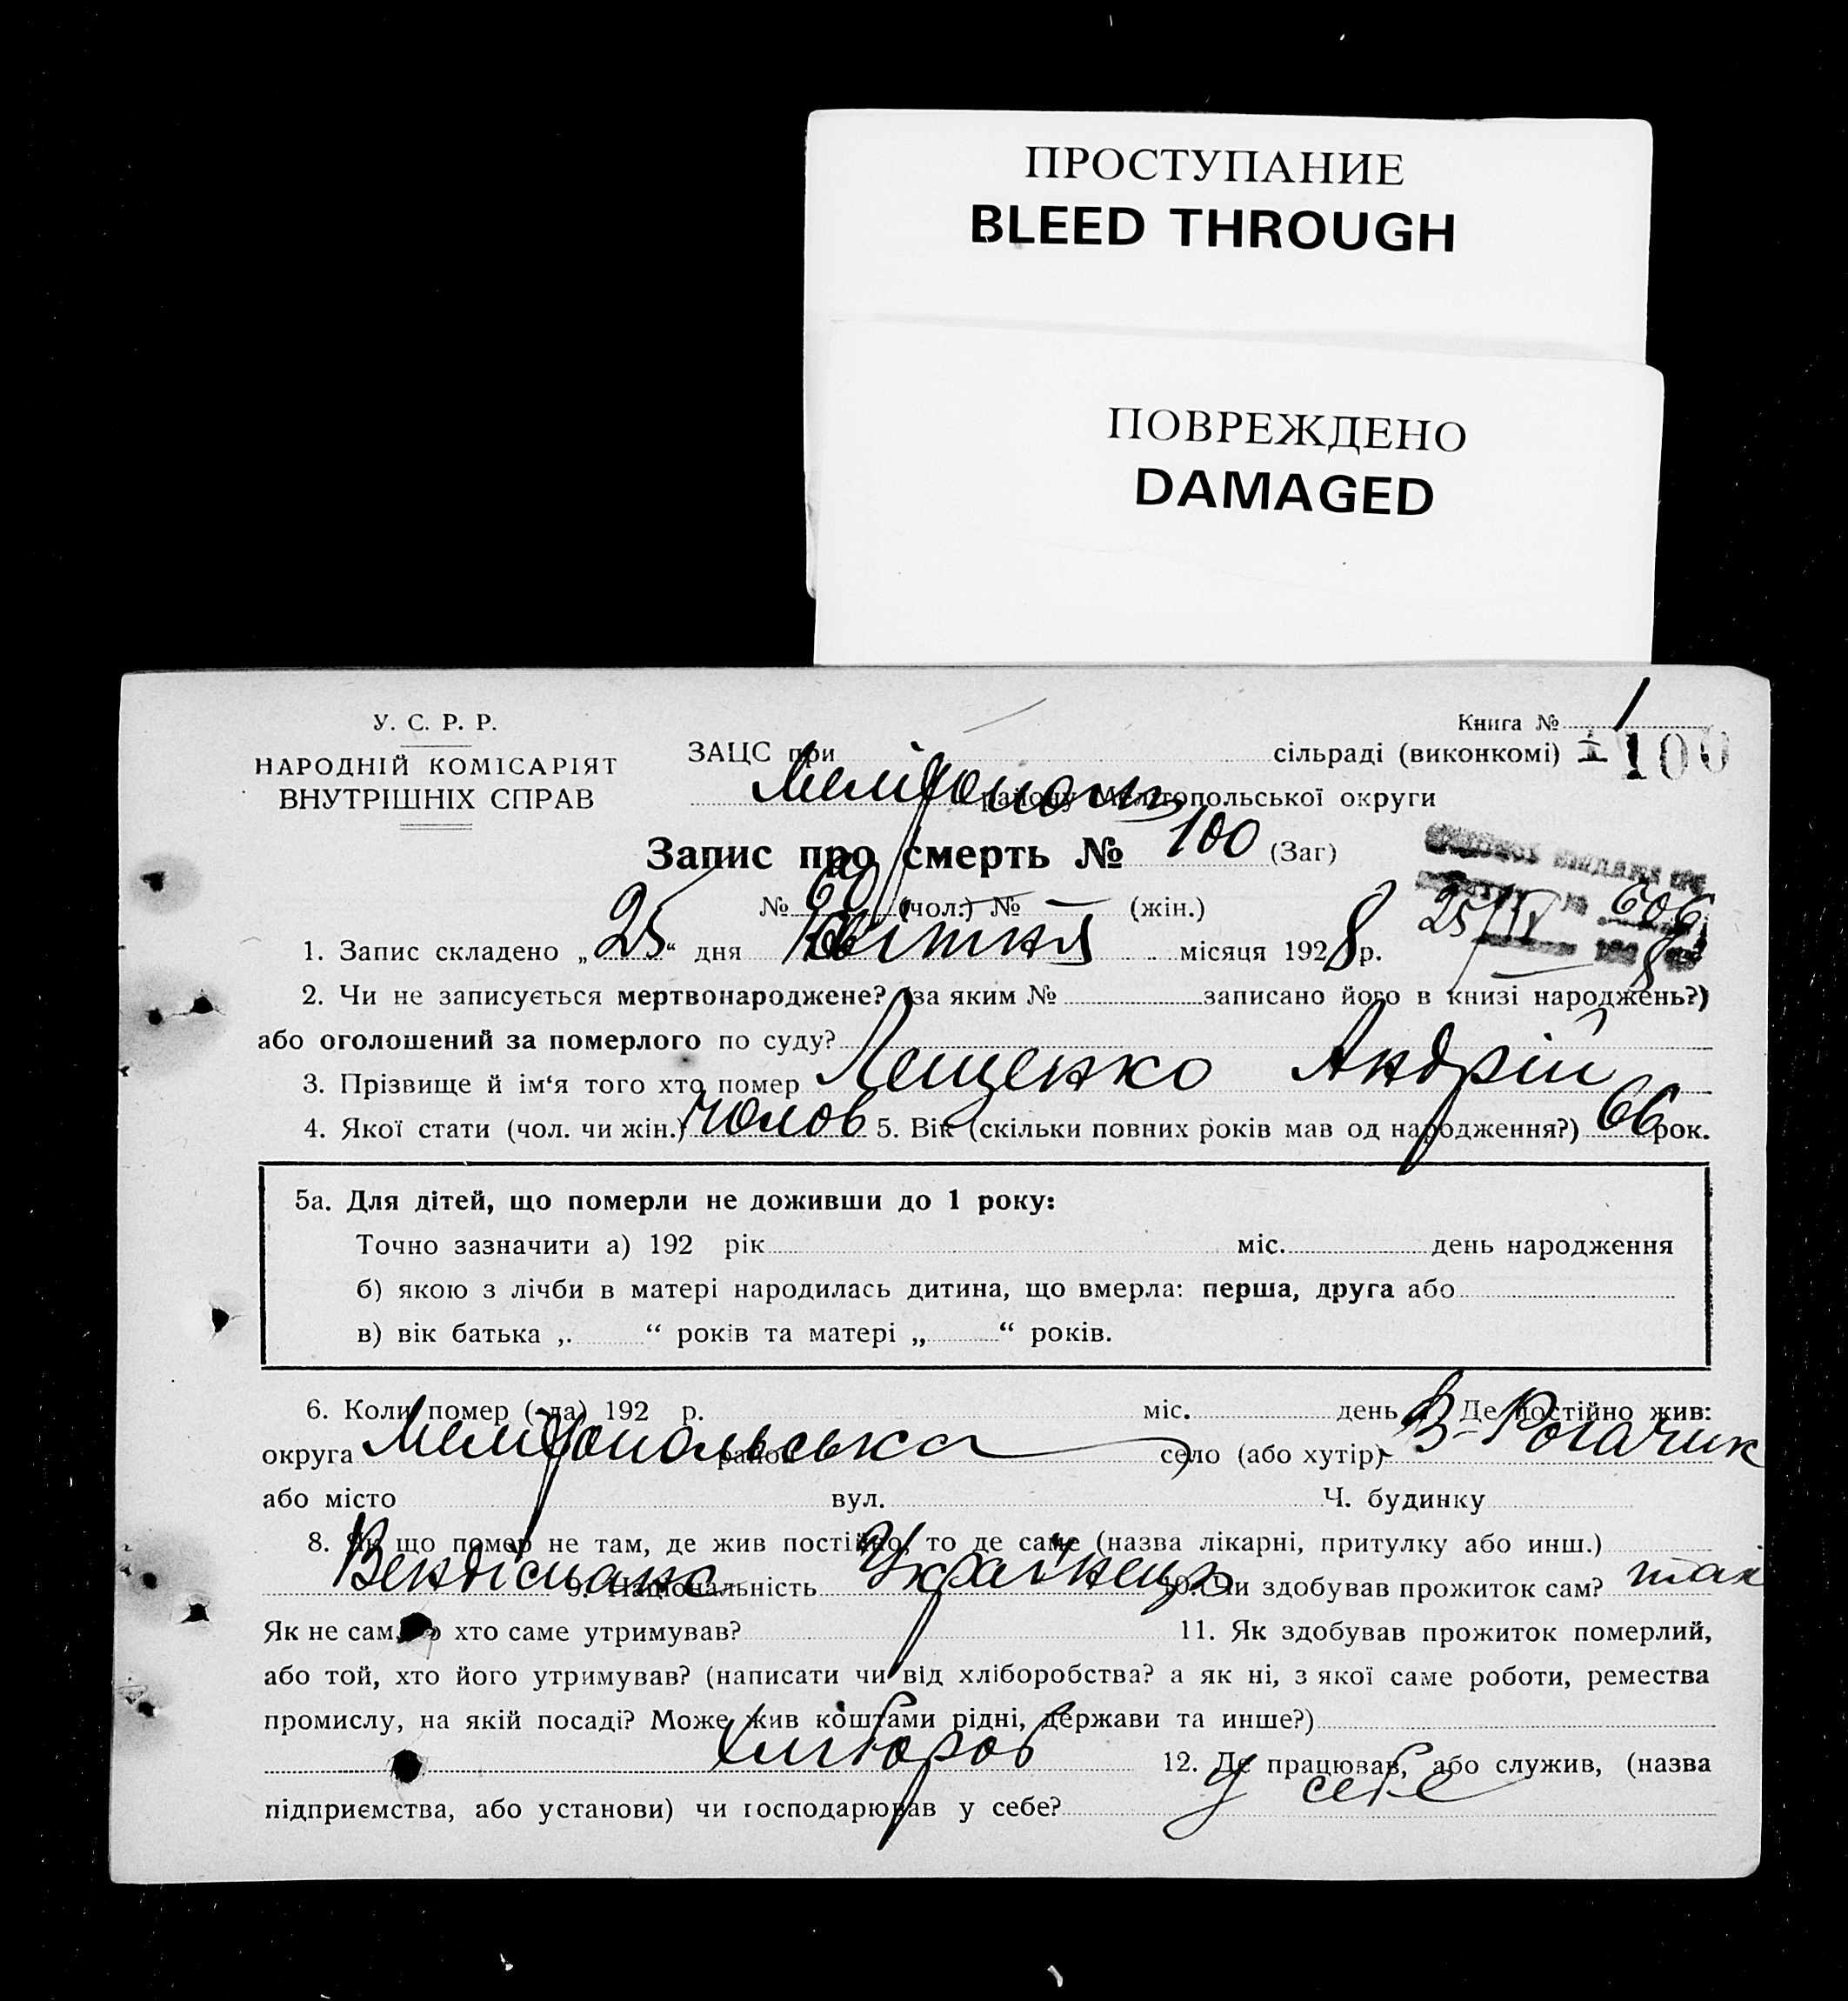 ПРОСТУПАНИЕ
BLEED THROUGH
ПОВРЕЖДЕНО
DAMAGED
У. С. Р. Р.
НАРОДНІЙ КОМІСАРІЯТ
ВНУТРІШНІХ СПРАВ
Книга № 1
ЗАЦС при сільраді (виконкомі) 100
Мелітополь району Мелітопольської округи
Запис про смерть № 100 (Заг)
№ 60 (чол.) № — (жін.)
25/IV 606
8
1. Запис складено „25“ дня Квітня місяця 1928 р.
2. Чи не записується мертвонароджене? (за яким № записано його в книзі народжень?)
або оголошений за померлого по суду?
3. Прізвище й ім‘я того хто помер Лещенко Андрій
4. Якої стати (чол. чи жін.) чолов 5. Вік (скільки повних років мав од народження?) 66 рок.
5а. Для дітей, що померли не доживши до 1 року:
Точно зазначити а) 192 рік міс. день народження
б) якою з лічби в матері народилась дитина, що вмерла: перша, друга або
в) вік батька „ “ років та матері „ “ років.
6. Коли помер (-ла) 192 р. міс. день 7. Де постійно жив:
округа Мелітопольська район село (або хутір) В-Рогачик
або місто вул. Ч. будинку
8. Як що помер не там, де жив постійно, то де саме (назва лікарні, притулку або инш.)
9. Національність Українець 10. Чи здобував прожиток сам? так
Як не сам, то хто саме утримував? 11. Як здобував прожиток померлий,
або той, хто його утримував? (написати чи від хліборобства? а як ні, з якої саме роботи, ремества
промислу, на якій посаді? Може жив коштами рідні, держави та инше?)
хлібороб 12. Де працював, або служив, (назва
підприємства, або установи) чи господарював у себе? у себе